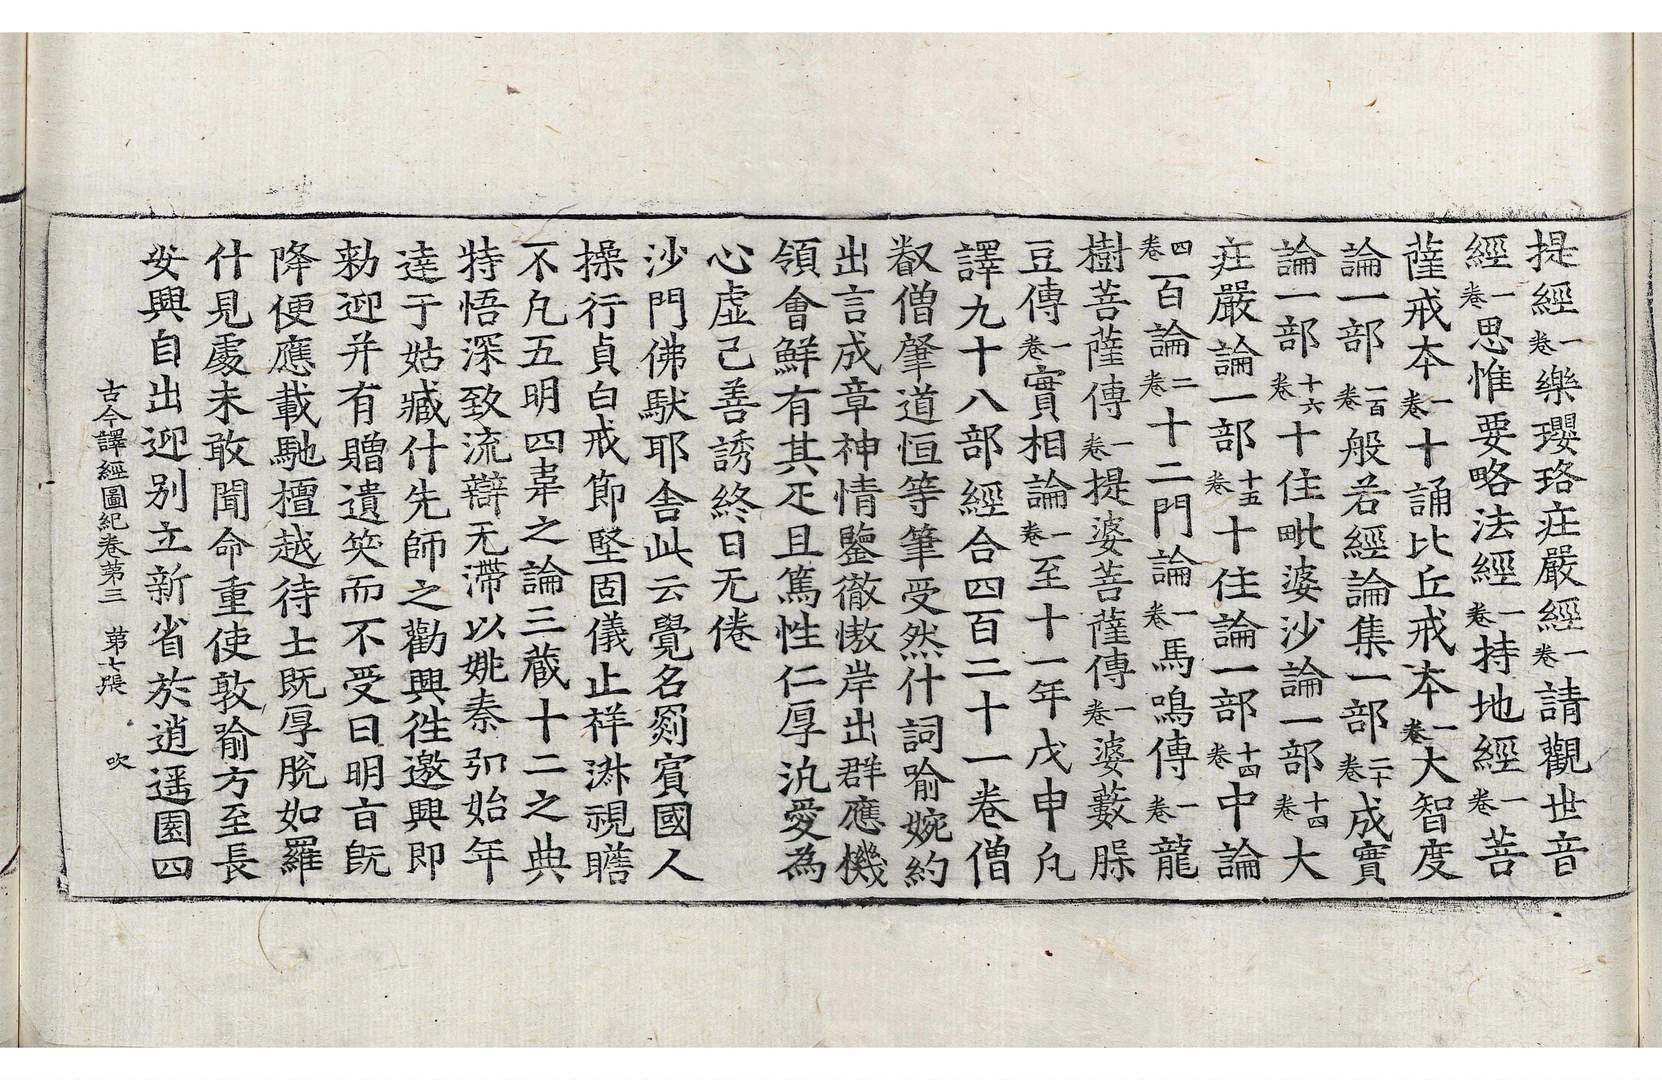 提經一卷樂瓔珞庄嚴經一卷請觀世音
經一卷思惟要略法經一卷持地經一卷菩
薩戒本一卷十誦比丘戒本一卷大智度
論一部一百卷般若經論集一部二十卷成實
論一部十六卷十住毗婆沙論一部十四卷大
庄嚴論一部十五卷十住論一部十四卷中論
四卷百論二卷十二門論一卷馬鳴傳一卷龍
樹菩薩傳一卷提婆菩薩傳一卷婆藪脲
豆傳一卷實相論一卷至十一年戊申凡
譯九十八部經合四百二十一卷僧
叡僧肇道恒等筆受然什詞喻婉約
出言成章神情鑒徹慠岸出群應機
領會鮮有其疋且篤性仁厚汎愛為
心虛己善誘終日无倦
沙門佛馱耶舍此云覺名罽賓國人
操行貞白戒節堅固儀止祥淋視瞻
不凡五明四韋之論三藏十二之典
特悟深致流辯无滯以姚秦弘始年
達于姑臧什先師之勸興徃邀興即
勑迎并有贈遺笑而不受曰明旨旣
降便應載馳檀越待士旣厚脫如羅
什見處未敢聞命重使敦喻方至長
安興自出迎別立新省於逍遥園四
古今譯經圖紀卷第三 第七張 吹